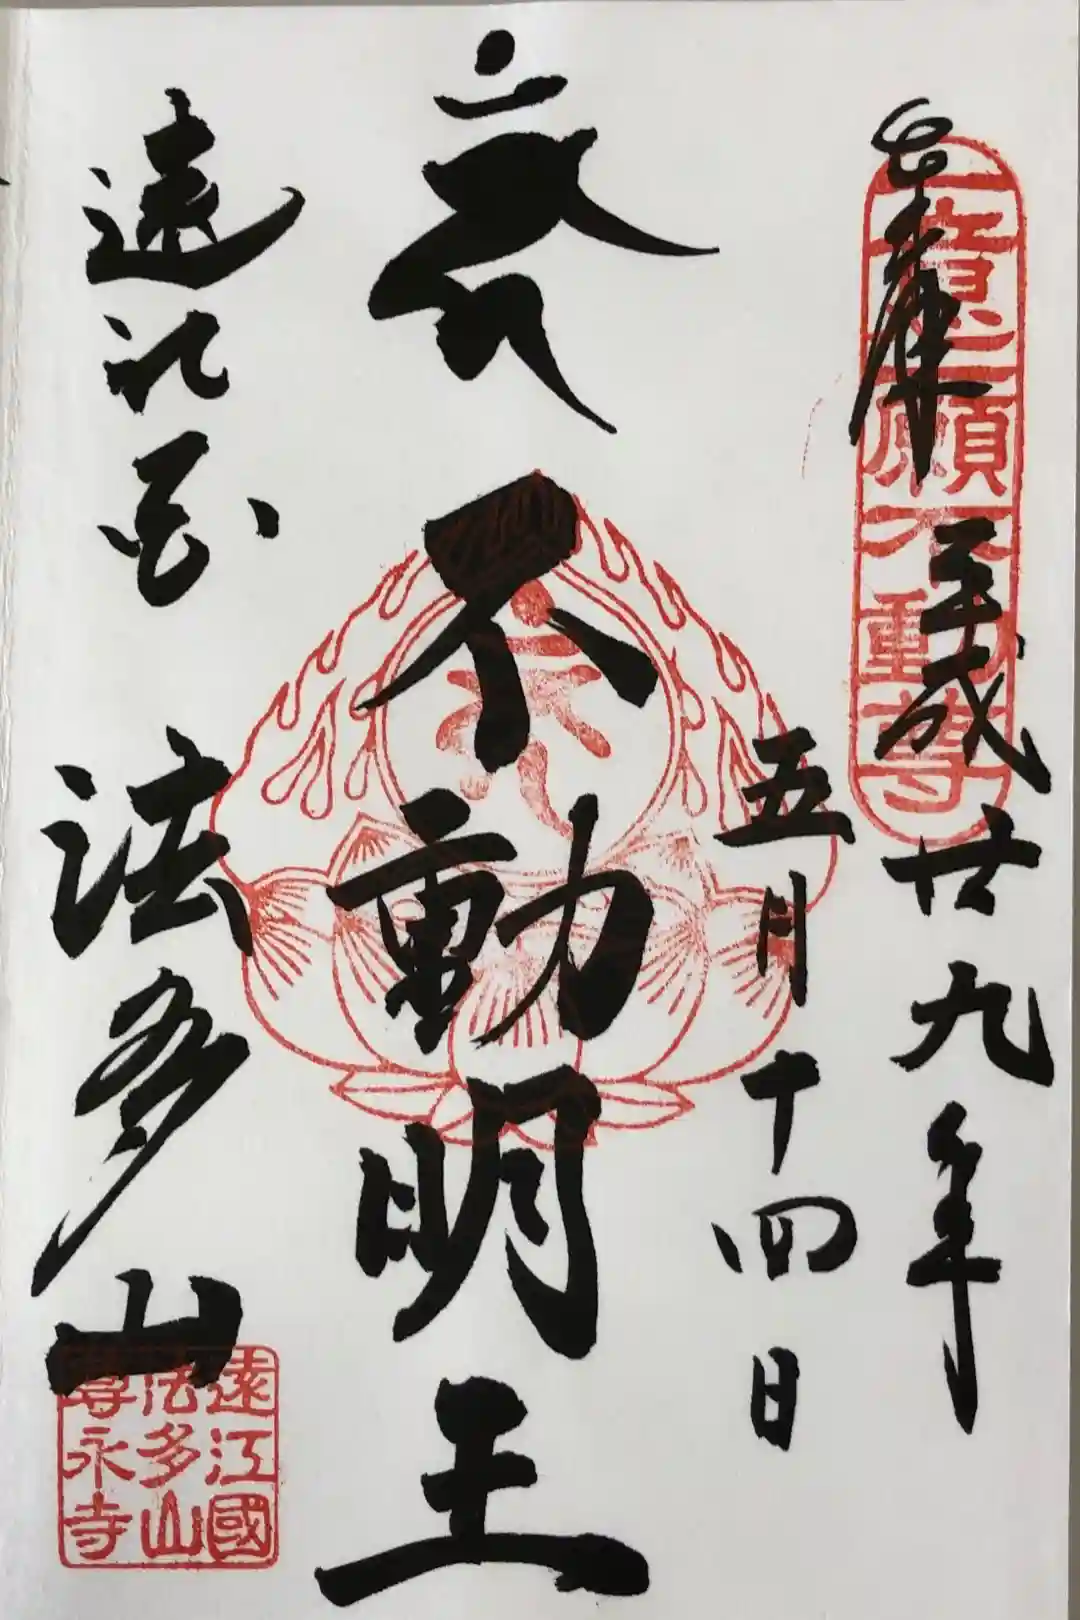 奉拝
平成廿九年
五月十四日
一意一願不動尊
不動明王
遠江国
法多山
遠江國
法多山
尊永寺